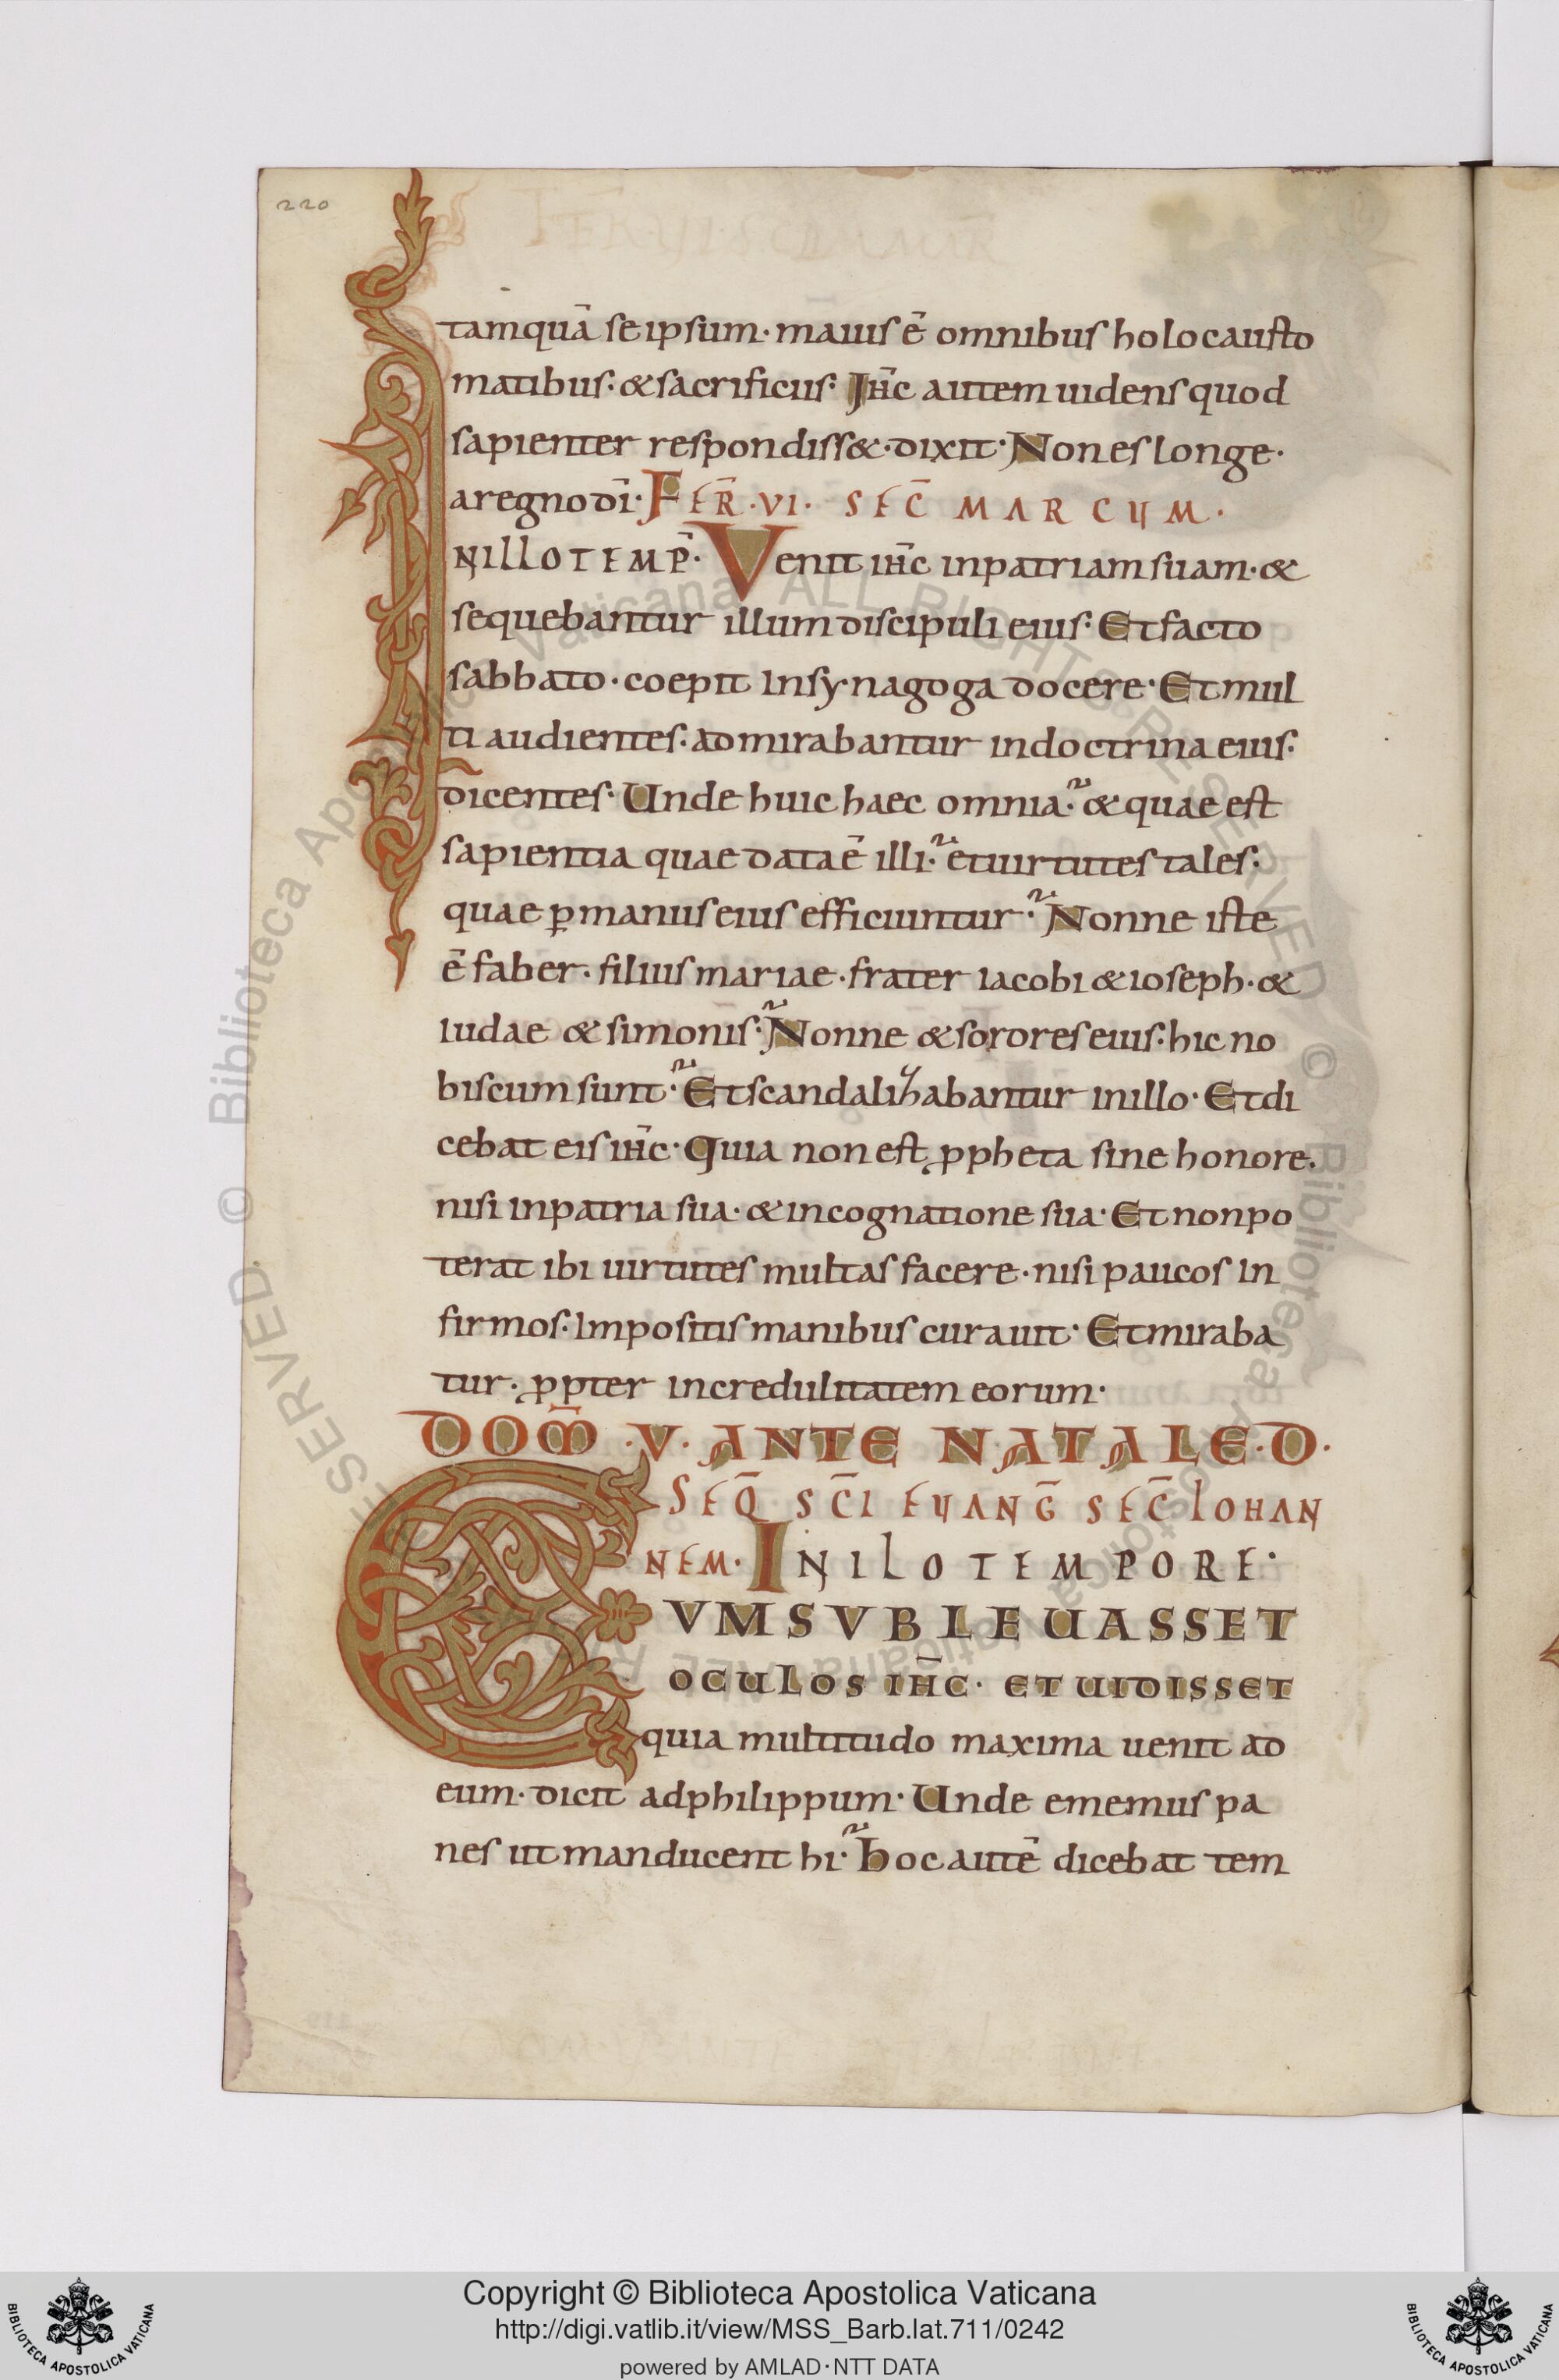 220
tamquā seipsum· maius ē omnibus holocausto
matibus· & sacrificiis· Ih̄c autem uidens quod
sapienter respondiss&· dixit· Non es longe·
a regno dī· FER̄·VI· SEC̄ MARCUM·
NILLO TEMP̄· Venit ih̄c inpatriam suam· &
sequebantur illum discipuli eius· Et facto
sabbato· coepit Insynagoga docere· Et mul
ti audientes· admirabantur indoctrina eius·
dicentes· Unde huic haec omnia· & quae est
sapientia quae data ē illi· et uirtutes tales·
quae ꝑ manus eius efficiuntur· Nonne iste
ē faber· filius mariae· frater iacobi & ioseph· &
iudae & simonis· Nonne & sorores eius· hic no
biscum sunt· Et scandalizabantur inillo· Et di
cebat eis ih̄c· Quia non est ꝓpheta sine honore·
nisi inpatria sua· & incognatione sua· Et non po
terat ibi uirtutes multas facere· nisi paucos In
firmos· Impositis manibus curauit· Et miraba
tur· ꝓpter incredulitatem eorum·
DOM̄·V· ANTE NATALE·D·
SEQ̄ SC̄I EUANḠ SEC̄ IOHAN
NEM· IN ILO TEMPORE·
CVM SVBLEUASSET
OCULOS IH̄C· ET UIDISSET
quia multitudo maxima uenit ad
eum· dicit adphilippum· Unde ememus pa
nes ut manducent hi· hoc autē dicebat tem
© Biblioteca Apostolica Vaticana ALL RIGHTS RESERVED
© Biblioteca Apostolica Vaticana ALL RIGHTS RESERVED
Copyright © Biblioteca Apostolica Vaticana
http://digi.vatlib.it/view/MSS_Barb.lat.711/0242
powered by AMLAD·NTT DATA
BIBLIOTECA APOSTOLICA VATICANA
BIBLIOTECA APOSTOLICA VATICANA